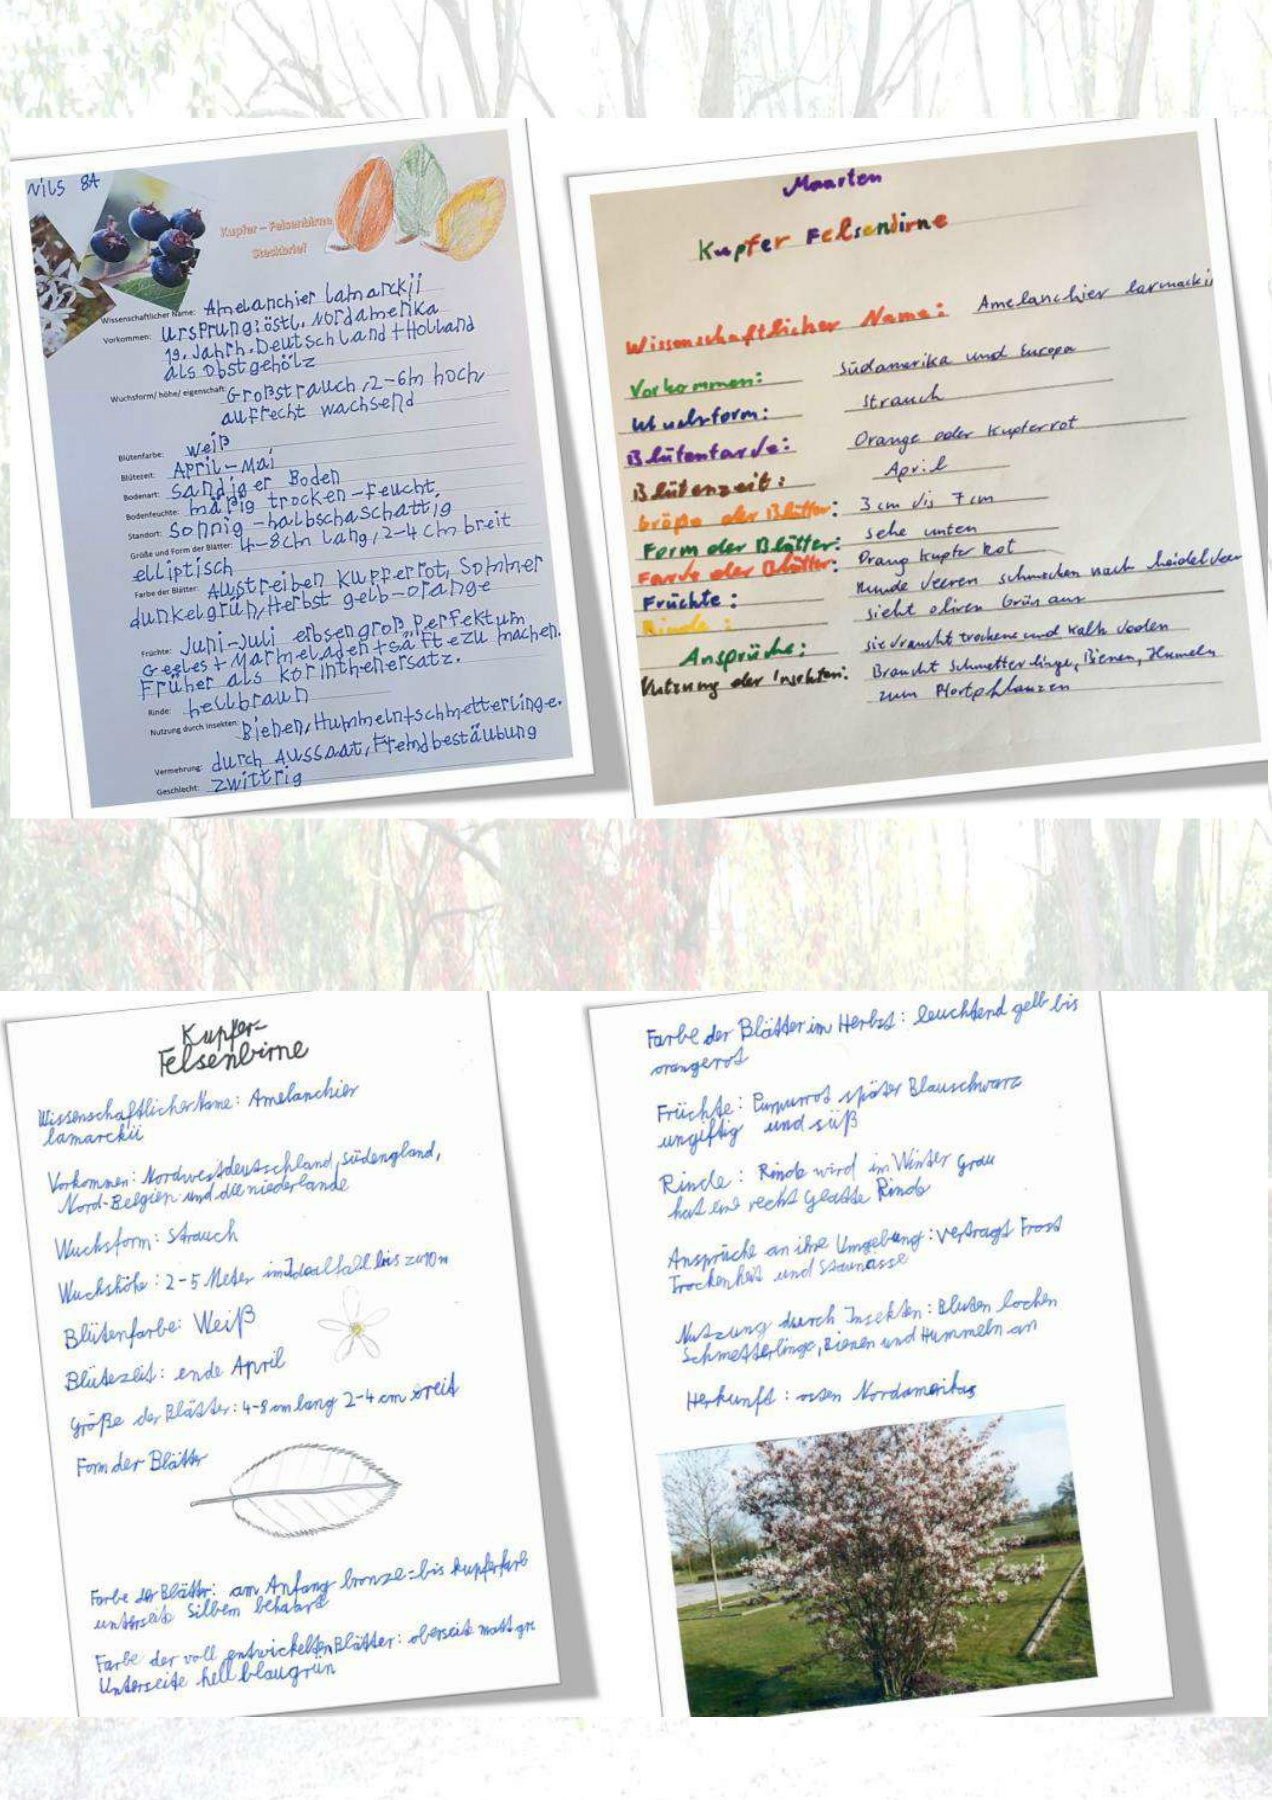 Nils 8A
Kupfer – Felsenbirne
Steckbrief
Wissenschaftlicher Name: Amelanchier lamarckii
Vorkommen: Ursprung: östl. Nordamerika
19. Jahrh. Deutschland + Holland
als Obstgehölz
Wuchsform/ höhe/ eigenschaft: Großstrauch, 2-6m hoch,
aufrecht wachsend
Blütenfarbe: weiß
Blütezeit: April-Mai
Bodenart: sandiger Boden
Bodenfeuchte: mäßig trocken-feucht,
Standort: Sonnig-halbschaschattig
Größe und Form der Blätter: 4-8cm lang, 2-4 cm breit
elliptisch
Farbe der Blätter: Austreiben kupferrot, Sommer
dunkelgrün, Herbst gelb-orange
Früchte: Juni-Juli erbsengroß, Perfektum
Geeles + Marmeladen + säfte zu machen.
Früher als korinthenersatz.
Rinde: hellbraun
Nutzung durch Insekten: Bienen, Hummeln + schmetterlinge.
Vermehrung: durch Aussaat, Fremdbestäubung
Geschlecht: zwittrig
Maarten
Kupfer Felsenbirne
Wissenschaftlicher Name: Amelanchier larmackii
Vorkommen: Südamerika und Europa
Wuchsform: Strauch
Blütenfarbe: Orange oder Kupferrot
Blütenzeit: April
Größe der Blätter: 3 cm bis 7 cm
Form der Blätter: sehe unten
Farbe der Blätter: Orang Kupfer Rot
Früchte: Runde Beeren schmecken nach heidelbeer
Rinde: sieht oliven Grün aus
Ansprüche: sie braucht trockene und Kalk boden
Nutzung der Insekten: Braucht Schmetterlinge, Bienen, Humeln
zum Pfortpflanzen
Kupfer-
Felsenbirne
Wissenschaftlicher Name: Amelanchier
lamarckii
Vorkommen: Nordwestdeutschland, südengland,
Nord-Belgien und die niederlande
Wuchsform: Strauch
Wuchshöhe: 2-5 Meter im Idealfall bis zu 10m
Blütenfarbe: Weiß
Blütezeit: ende April
Größe der Blätter: 4-8 cm lang 2-4 cm breit
Form der Blätter
Farbe der Blätter: am Anfang bronze- bis kupferfarb
unterseite Silbern behaart
Farbe der voll entwickelten Blätter: oberseite matt gr
Unterseite hell blaugrün
Farbe der Blätter im Herbst: leuchtend gelb bis
orangerot
Früchte: Purpurrot später Blauschwarz
ungiftig und süß
Rinde: Rinde wird im Winter grau
hat eine recht glatte Rinde
Ansprüche an ihre Umgebung: vertragt Frost
Trockenheit und Staunässe
Nutzung durch Insekten: Bluten locken
Schmetterlinge, Bienen und Hummeln an
Herkunft: osten Nordamerikas